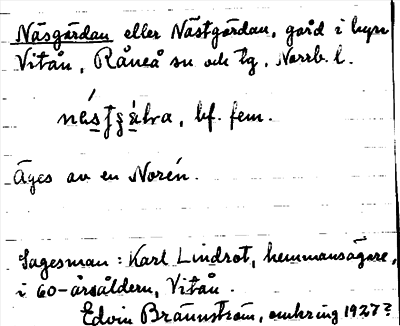 Näsgårdan eller Nästgårdan, gård i byn
Vitån, Råneå sn och tg, Norrb. l.
bf. fem.
Äges av en Norén.
Sagesman: Karl Lindrot, hemmansägare,
i 60-årsåldern, Vitån.
Edvin Brännström, omkring 1927?